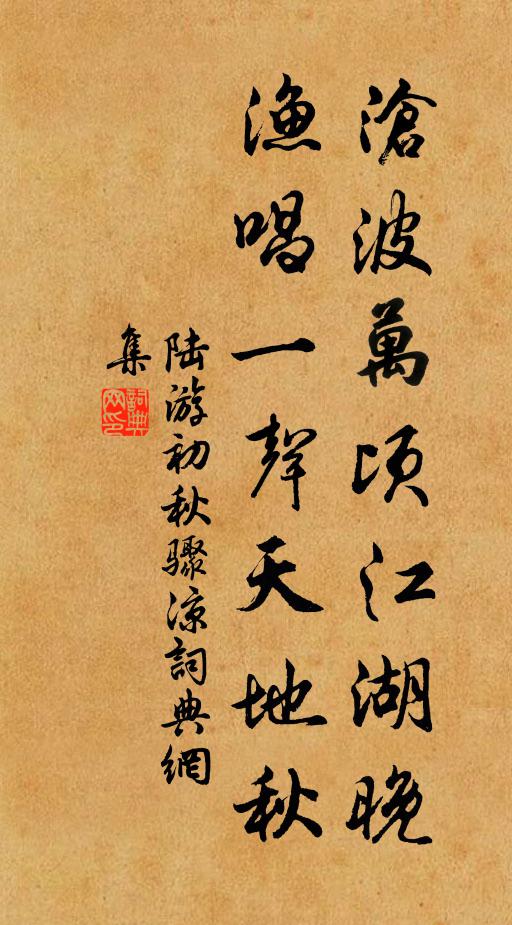 滄波萬頃江湖晚
漁唱一聲天地秋
陆游初秋骤凉詞典網
集
詞典
网印